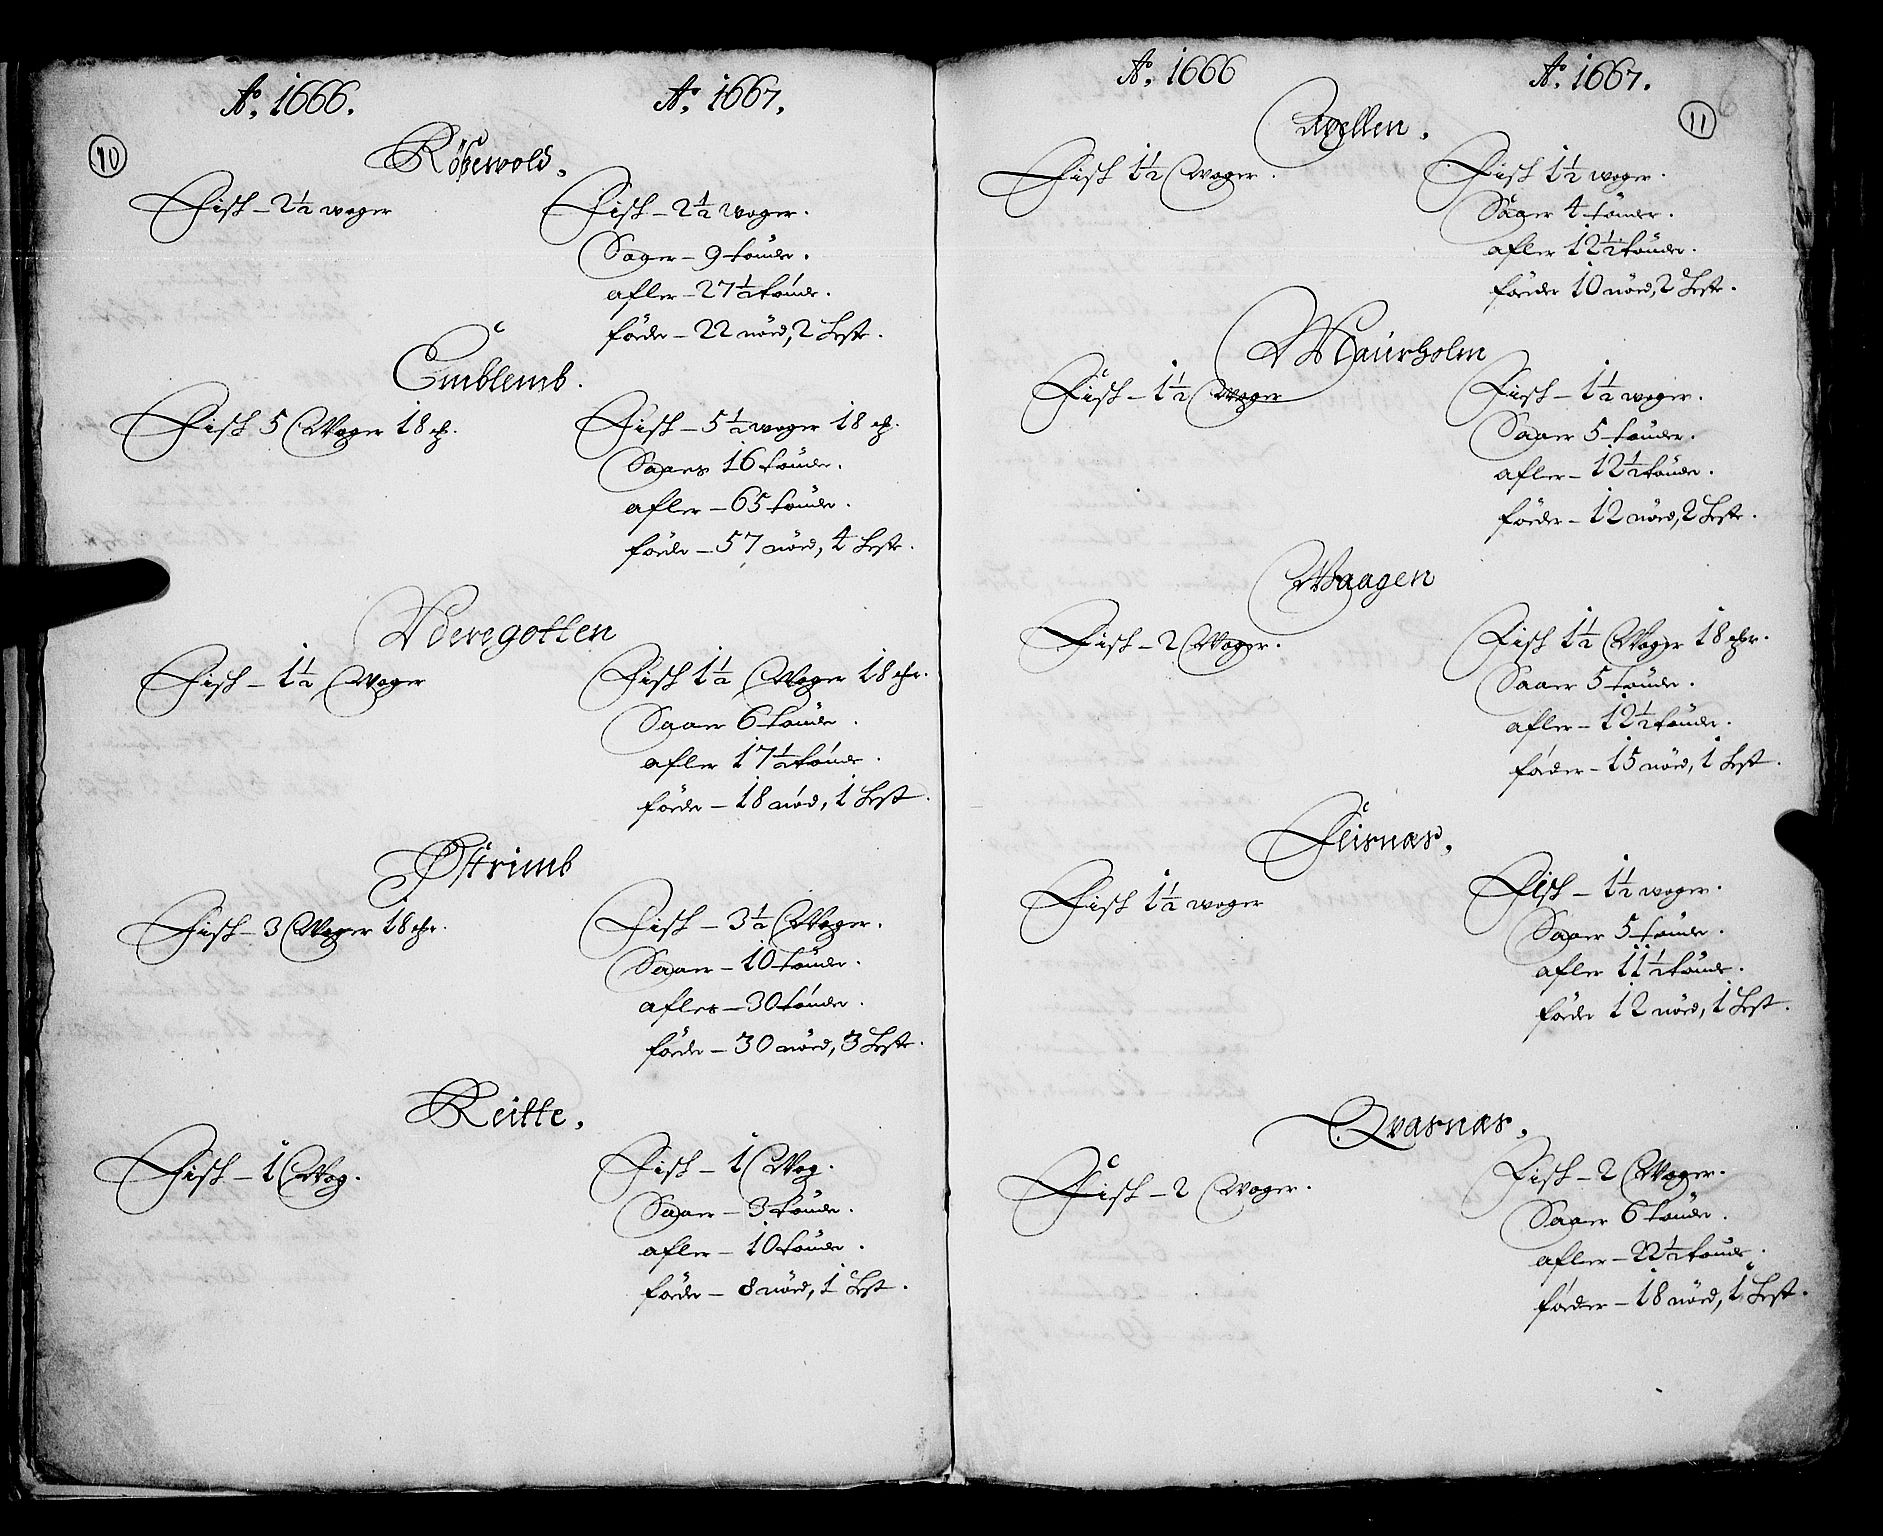 10
Ao. 1666. Ao. 1667.
Rödsewold.
Fisk – 2½ woger
Fisk – 2½ woger.
Saaer – 9 tönder.
afler – 27½ tönder.
föder – 22 nöed, 2 Leste.
Emblemb.
Fisk 5 Woger 18 ℔.
Fisk – 5½ woger 18 ℔.
Saaer 16 tönder.
afler – 65 tönder.
föder – 57 nöed, 4 Leste.
Vderegotten
Fisk – 1½ Woger
Fisk 1½ Woger 18 ℔r.
Saaer 6 tönder.
afler 17½ tönder.
föder – 18 nöd, 1 Lest.
Østrimb
Fisk – 3 Woger 18 ℔r.
Fisk – 3½ Woger.
Saaer – 10 tönder.
afler – 30 tönder.
föder – 30 nöed, 3 Leste.
Reitte.
Fisk – 1 Wog.
Fisk – 1 Wog.
Saaer – 3 tönder.
afler – 10 tönder.
föder – 8 nöed, 1 Lest.
11
Ao. 1666 Ao. 1667.
Fisk 1½ Woger.
Fisk 1½ woger.
Saaer 4 tönder.
afler 12½ tönder.
föeder 10 nöed, 2 Leste.
Maursholm
Fisk – 1½ Woger
Fisk – 1½ woger.
Saaer 5 tönder.
afler – 12½ tönder.
föder – 12 nöed, 2 Leste.
Waagen
Fisk – 2 Woger.
Fisk 1½ Woger 18 ℔r.
Saaer 5 tönder.
afler – 12½ tönder.
föder – 15 nöed, 1 Lest.
Flisnæs.
Fisk 1½ woger
Fisk – 1½ woger.
Saaer 5 tönder.
afler 11½ tönde.
föder 12 nöed, 1 Lest.
Qvasnæs.
Fisk – 2 Woger.
Fisk – 2 Woger.
Saaer 6 tönder.
afler – 22½ tönde.
föder – 18 nöed, 1 Lest.